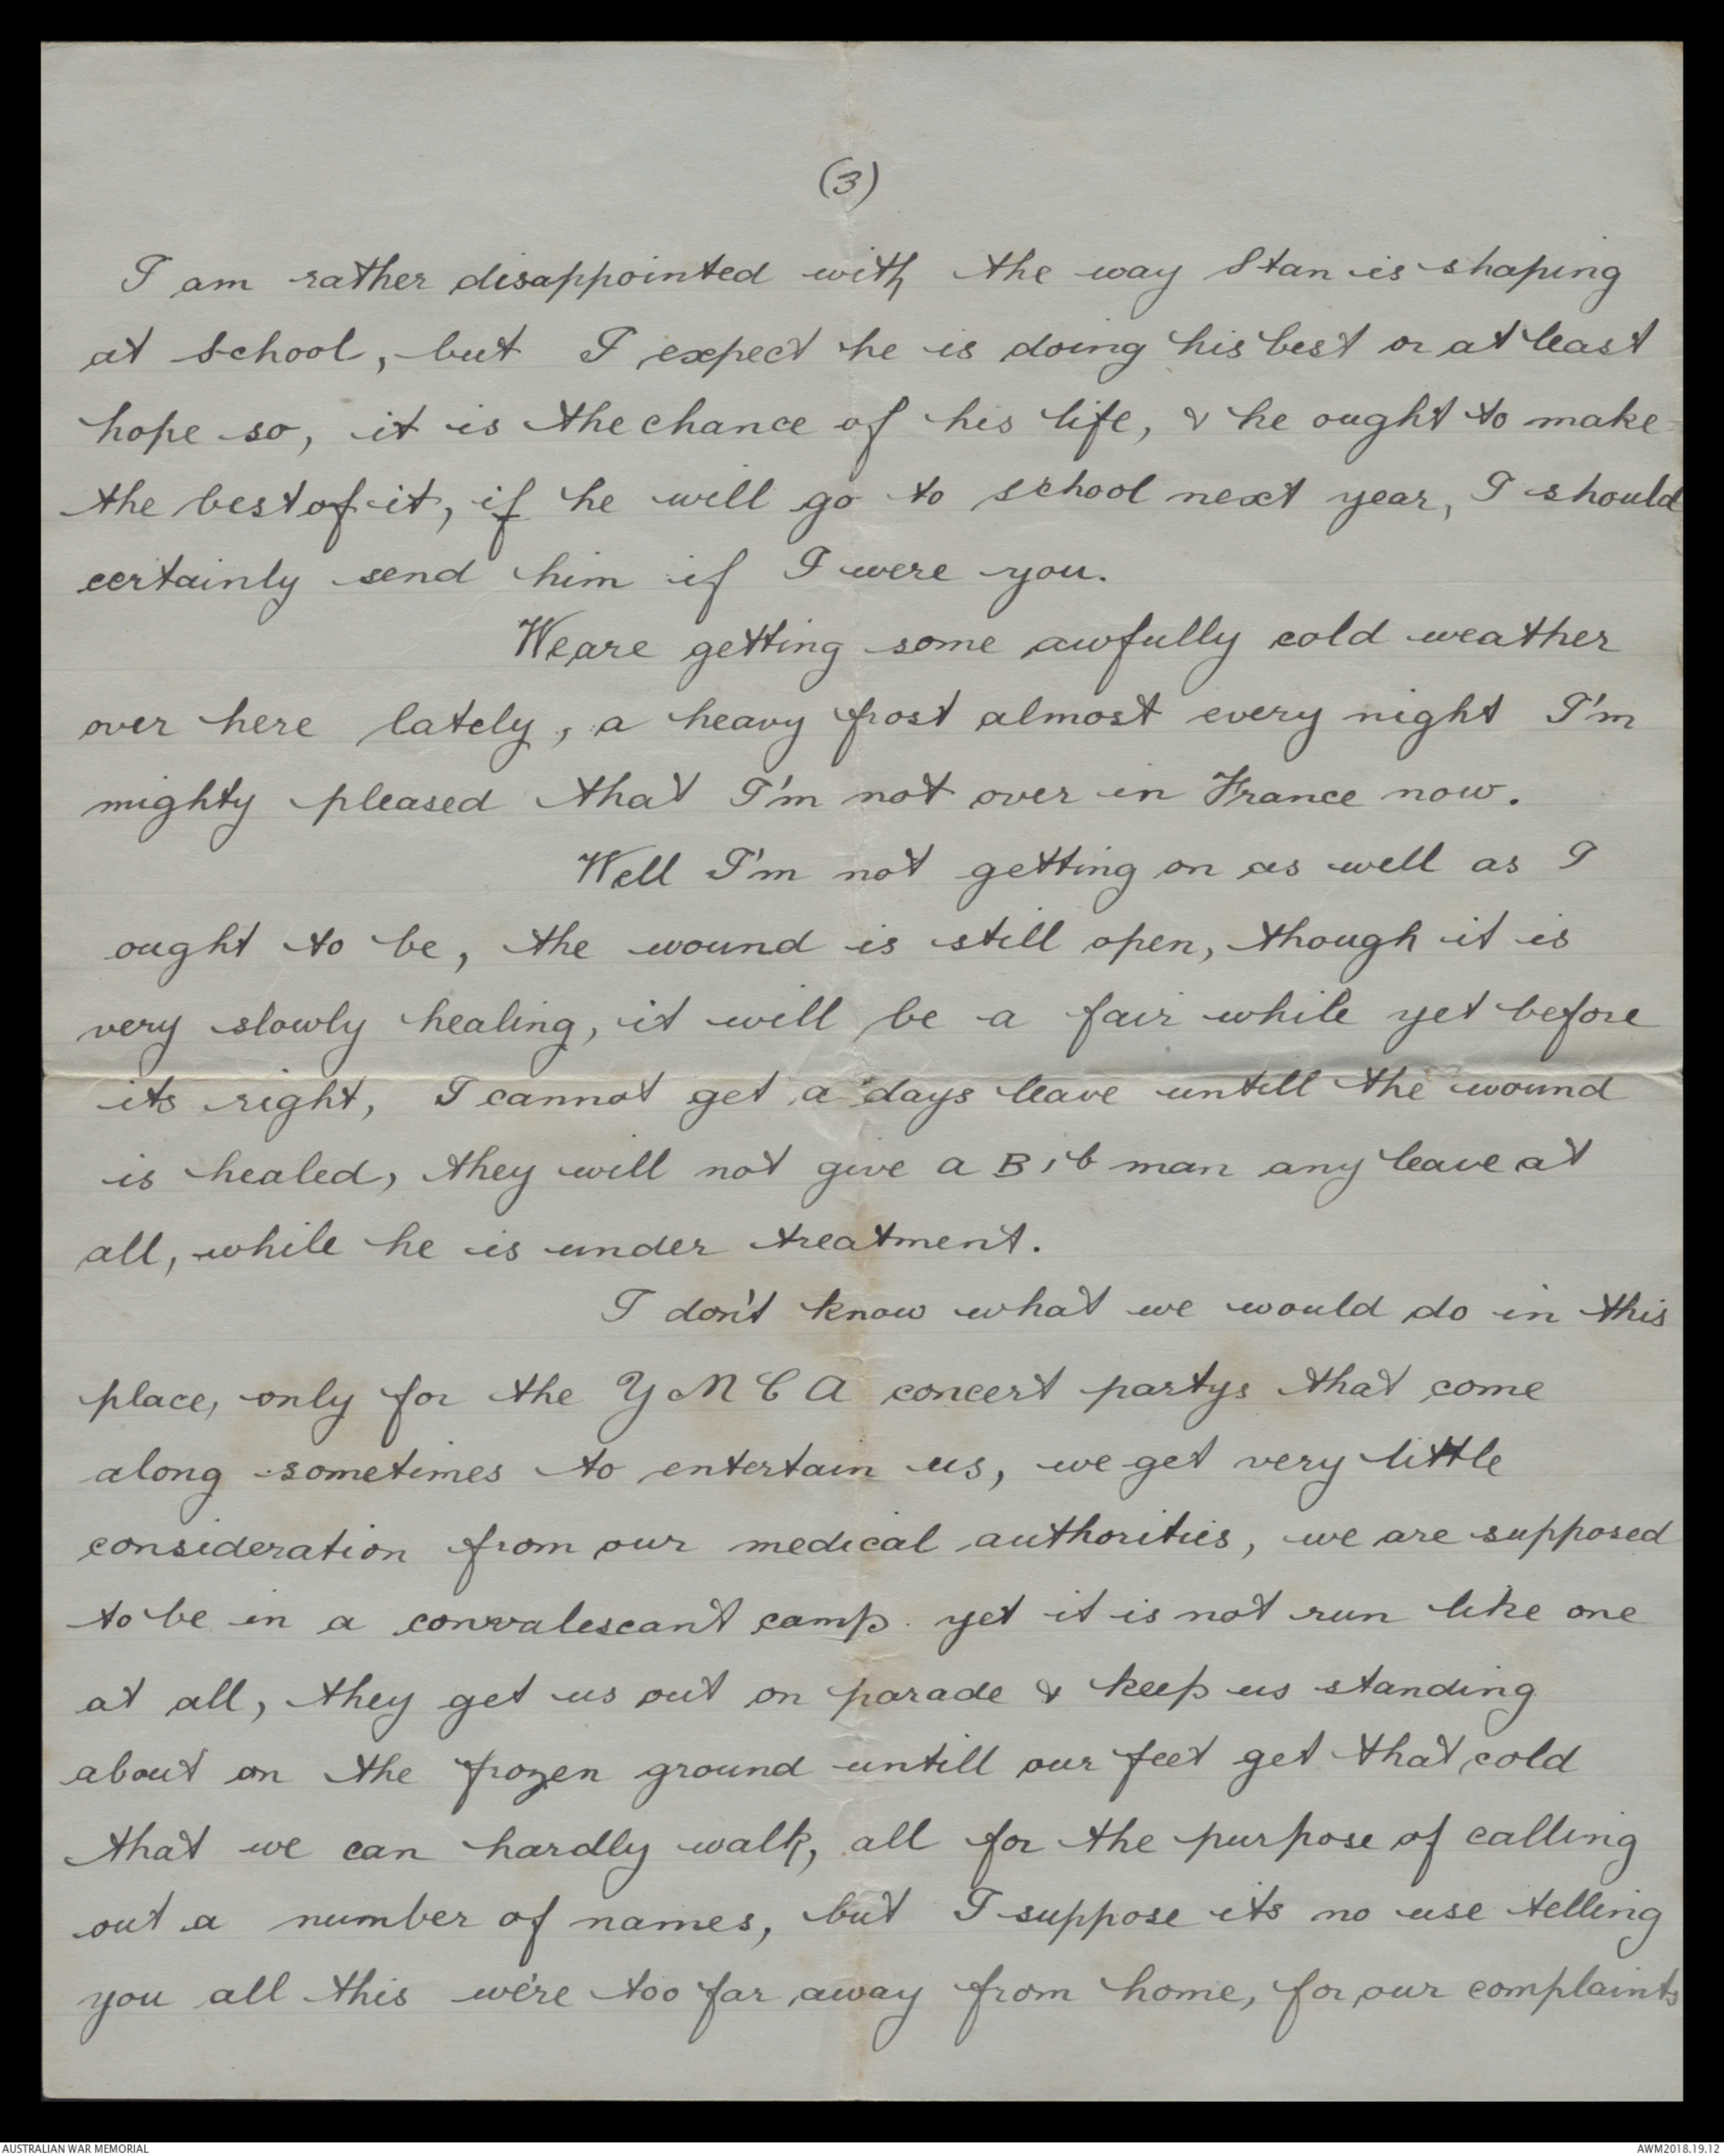 (3)
I am rather disappointed with the way Stan is shaping
at school, but I expect he is doing his best or at least
hope so, it is the chance of his life, & he ought to make
the best of it, if he will go to school next year, I should
certainly send him if I were you.
We are getting some awfully cold weather
over here lately, a heavy frost almost every night I'm
mighty pleased that I'm not over in France now.
Well I'm not getting on as well as I
ought to be, the wound is still open, though it is
very slowly healing, it will be a fair while yet before
its right, I cannot get a days leave untill the wound
is healed, they will not give a B1b man any leave at
all, while he is under treatment.
I don't know what we would do in this
place, only for the YMCA concert partys that come
along sometimes to entertain us, we get very little
consideration from our medical authorities, we are supposed
to be in a convalescant camp. yet it is not run like one
at all, they get us out on parade & keep us standing
about on the frozen ground untill our feet get that cold
that we can hardly walk, all for the purpose of calling
out a number of names, but I suppose its no use telling
you all this we're too far away from home, for our complaints
AUSTRALIAN WAR MEMORIAL
AWM2018.19.12